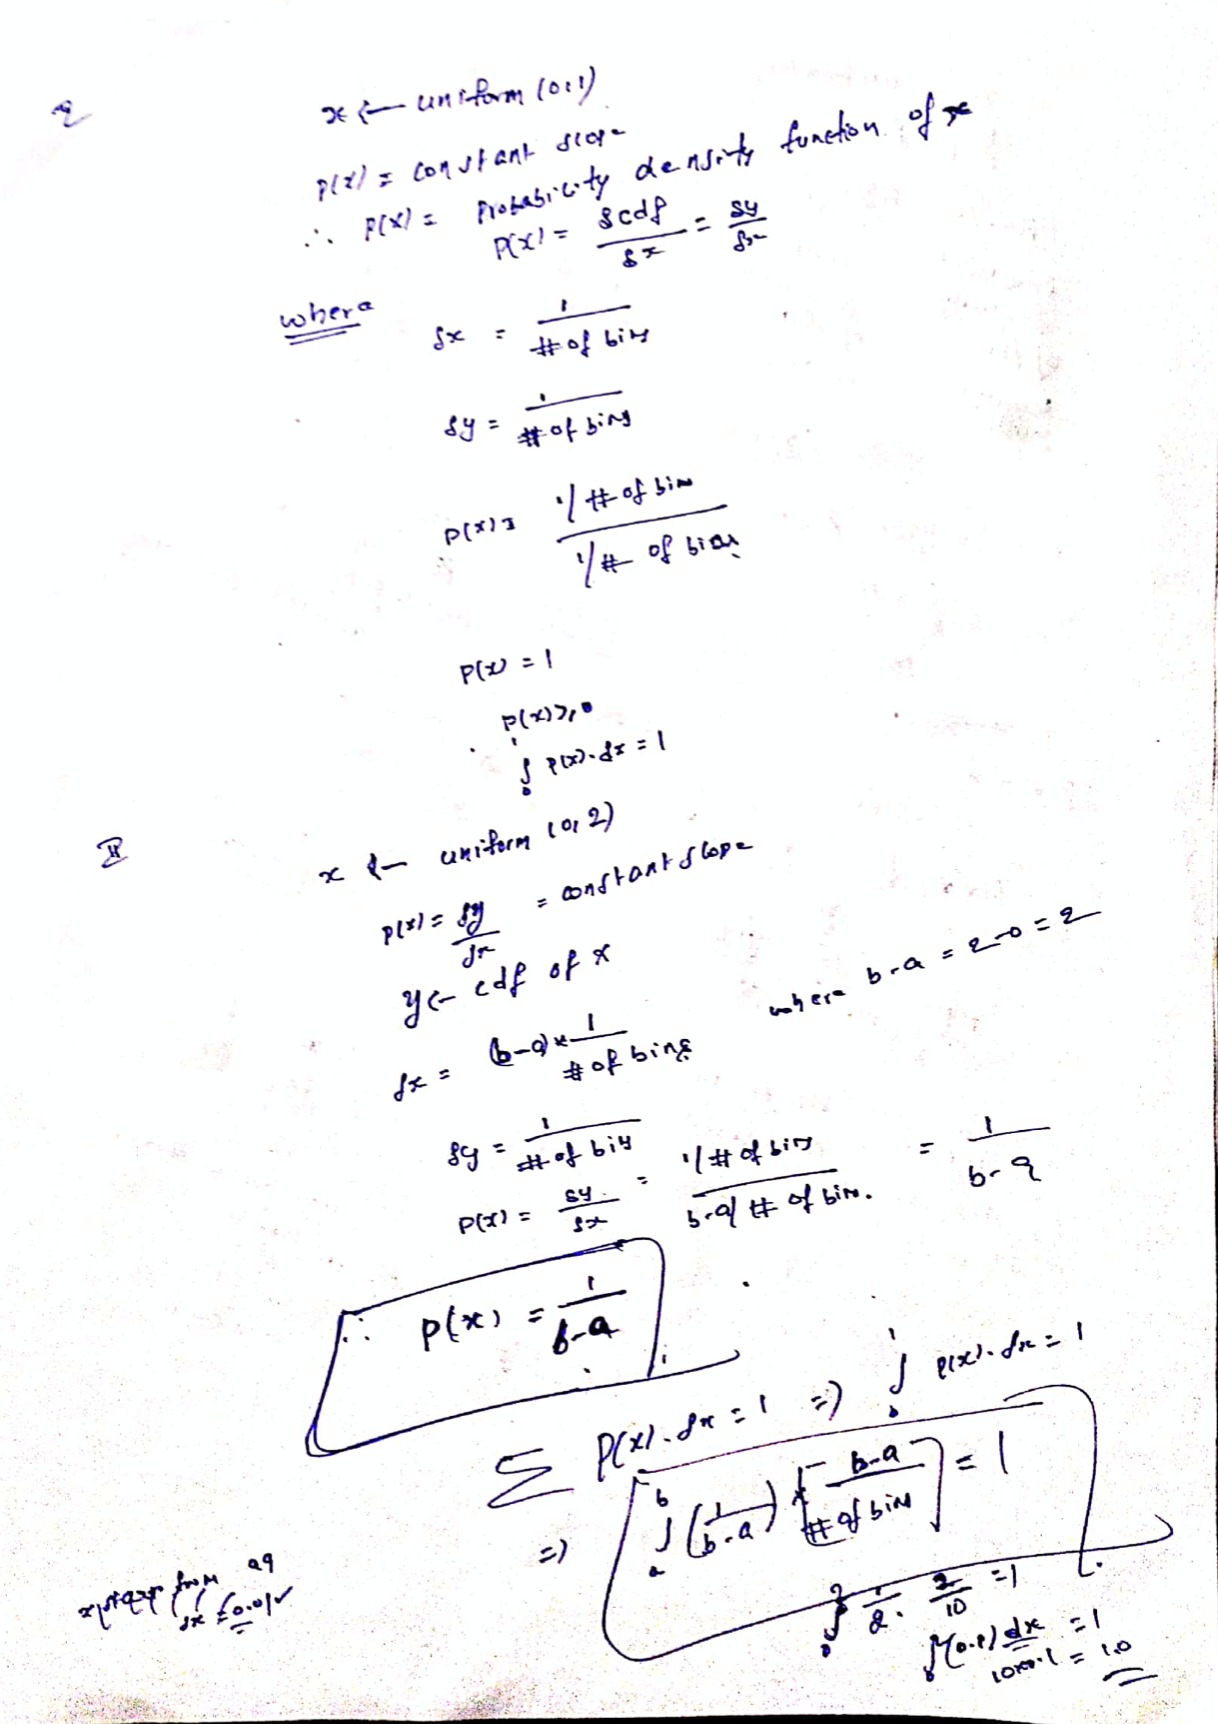 x ← uniform (0,1)
p(x) = constant slope
∴ p(x) = Probability density function of x
P(x) = δcdf/δx = δy/δx
where
δx = 1/# of bins
δy = 1/# of bins
p(x) = 1/# of bins / 1/# of bins
P(x) = 1
p(x) ≥ 0
∫₀¹ p(x)·δx = 1
II
x ← uniform (0, 2)
p(x) = δy/δx = constant slope
y ← cdf of x
δx = (b-a) × 1/# of bins where b-a = 2-0 = 2
δy = 1/# of bins
P(x) = δy/δx = 1/# of bins / b-a/# of bins = 1/b-a
∴ p(x) = 1/b-a
∑ P(x)·δx = 1 ⇒ ∫₀¹ p(x)·δx = 1
⇒ ∫ₐᵇ (1/b-a) × [b-a/# of bins] = 1
∫₀² 1/2 · 2/10 = 1
from a9
δx = 0.01 ✓
(0.1) dx = 1
10×0.1 = 1.0